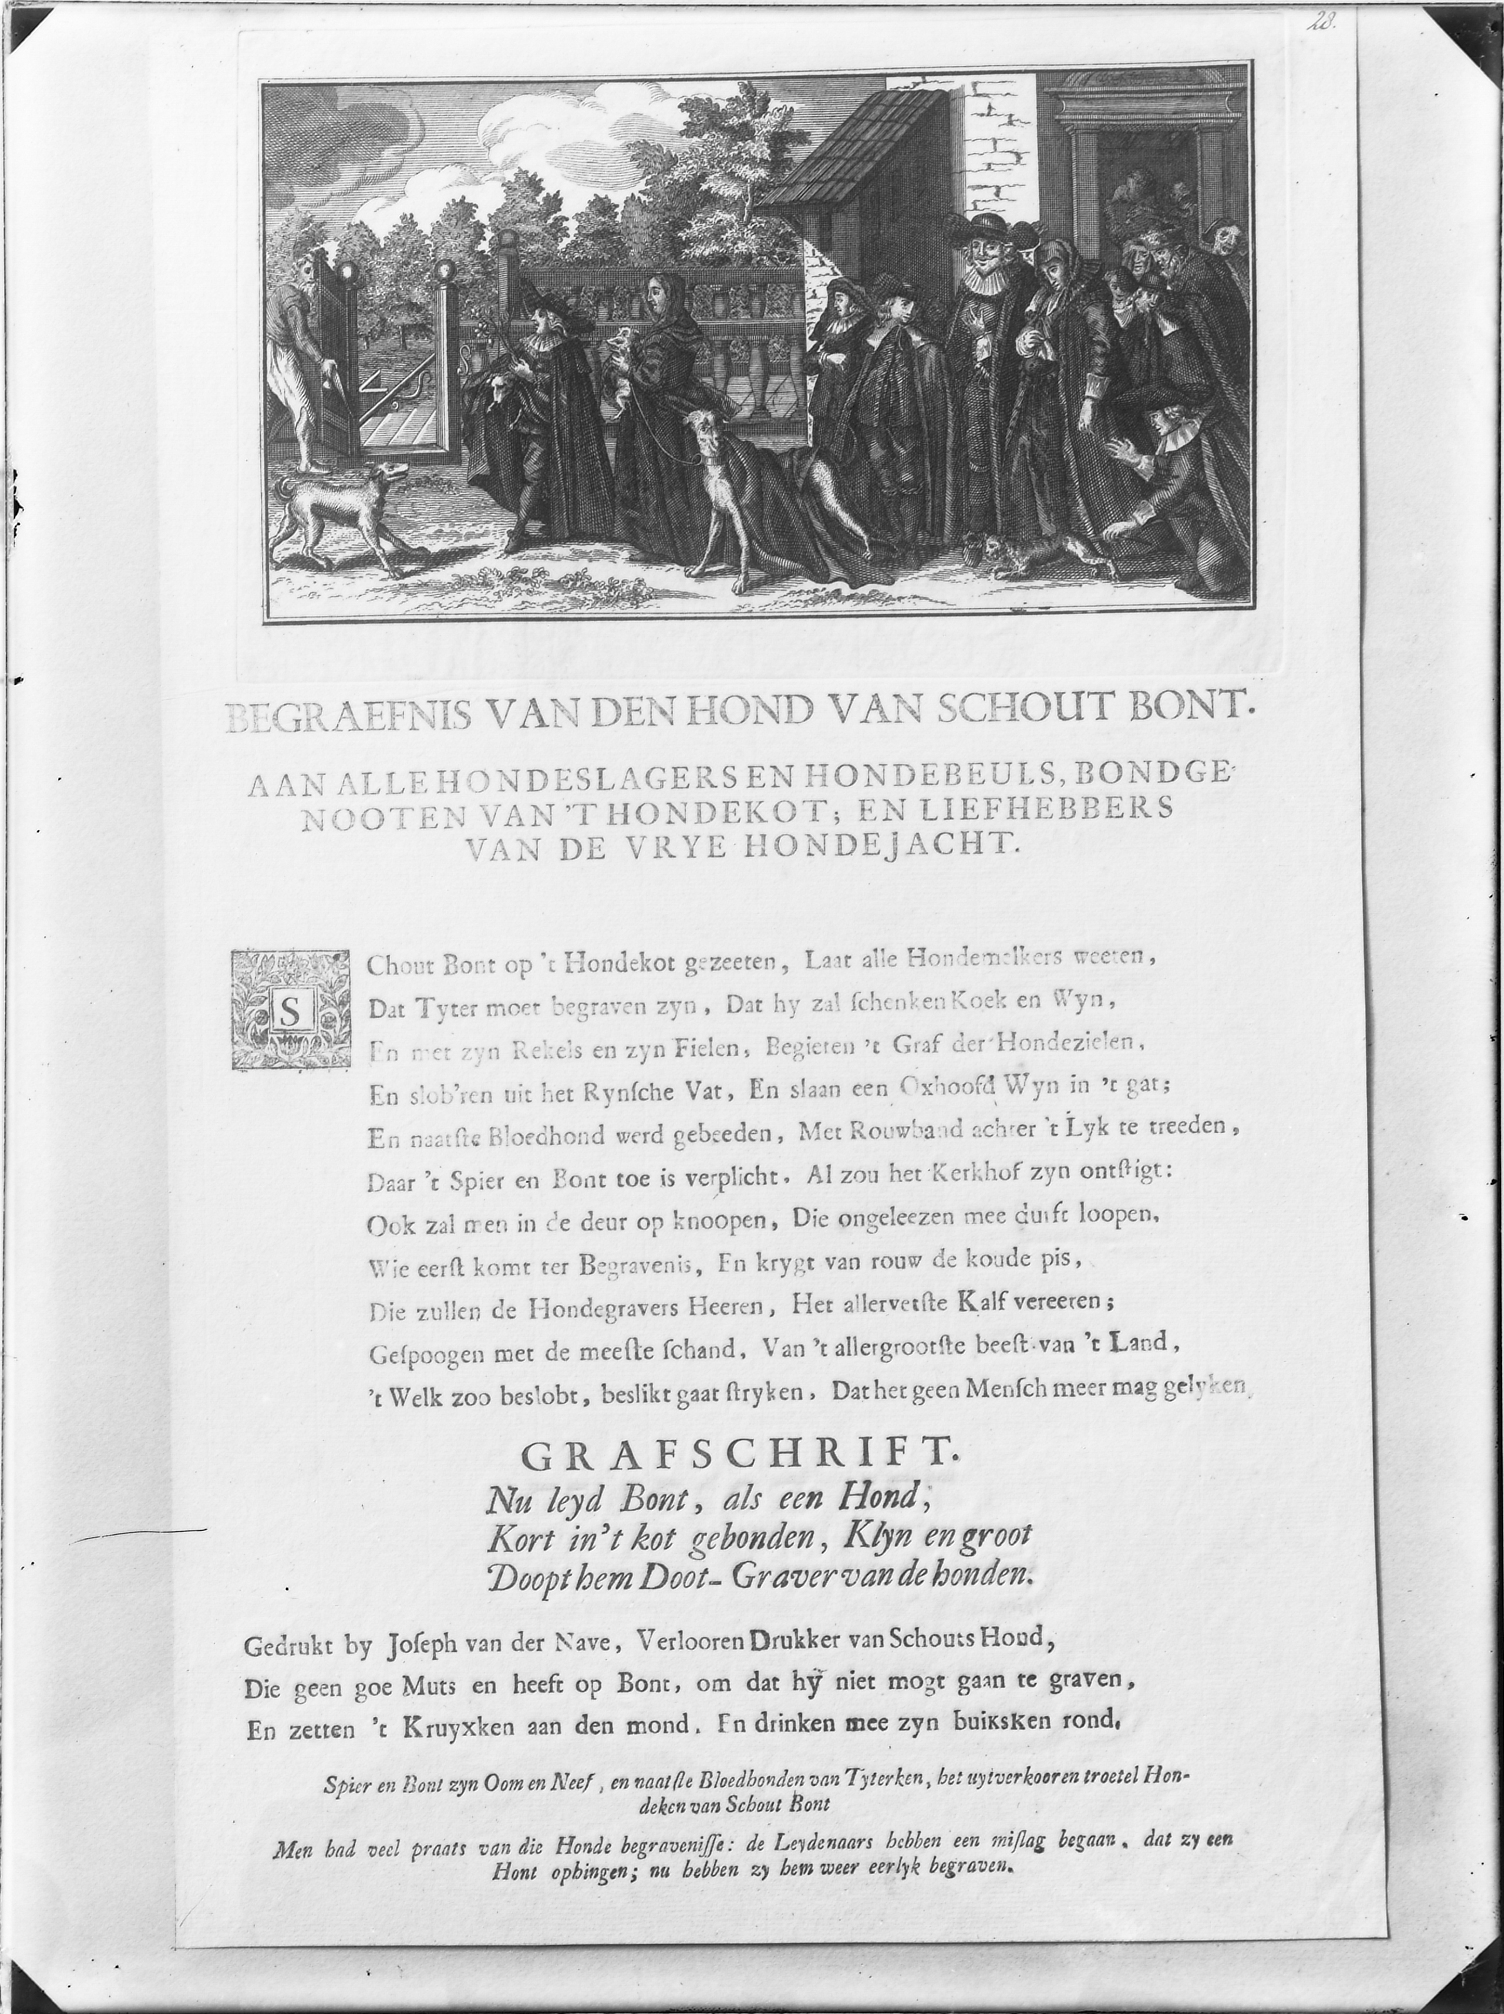 28.
BEGRAEFNIS VAN DEN HOND VAN SCHOUT BONT.
AAN ALLE HONDESLAGERS EN HONDEBEULS, BONDGE-
NOOTEN VAN 'T HONDEKOT; EN LIEFHEBBERS
VAN DE VRYE HONDEJACHT.
SChout Bont op 't Hondekot gezeeten, Laat alle Hondemelkers weeten,
Dat Tyter moet begraven zyn, Dat hy zal ſchenken Koek en Wyn,
En met zyn Rekels en zyn Fielen, Begieten 't Graf der Hondezielen,
En slob'ren uit het Rynſche Vat, En slaan een Oxhoofd Wyn in 't gat;
En naatſte Bloedhond werd gebeeden, Met Rouwband achter 't Lyk te treeden,
Daar 't Spier en Bont toe is verplicht. Al zou het Kerkhof zyn ontſtigt:
Ook zal men in de deur op knoopen, Die ongeleezen mee durft loopen,
Wie eerſt komt ter Begravenis, En krygt van rouw de koude pis,
Die zullen de Hondegravers Heeren, Het allervetſte Kalf vereeren;
Geſpoogen met de meeſte ſchand, Van 't allergrootſte beeſt van 't Land,
't Welk zoo beslobt, beslikt gaat ſtryken, Dat het geen Menſch meer mag gelyken,
GRAFSCHRIFT.
Nu leyd Bont, als een Hond,
Kort in't kot gebonden, Klyn en groot
Doopt hem Doot-Graver van de honden.
Gedrukt by Joſeph van der Nave, Verlooren Drukker van Schouts Hond,
Die geen goe Muts en heeft op Bont, om dat hÿ niet mogt gaan te graven,
En zetten 't Kruyxken aan den mond, En drinken mee zyn buiksken rond,
Spier en Bont zyn Oom en Neef, en naatſte Bloedhonden van Tyterken, het uytverkooren troetel Hon-
deken van Schout Bont
Men had veel praats van die Honde begraveniſſe: de Leydenaars hebben een miſlag begaan, dat zy een
Hont ophingen; nu hebben zy hem weer eerlyk begraven.